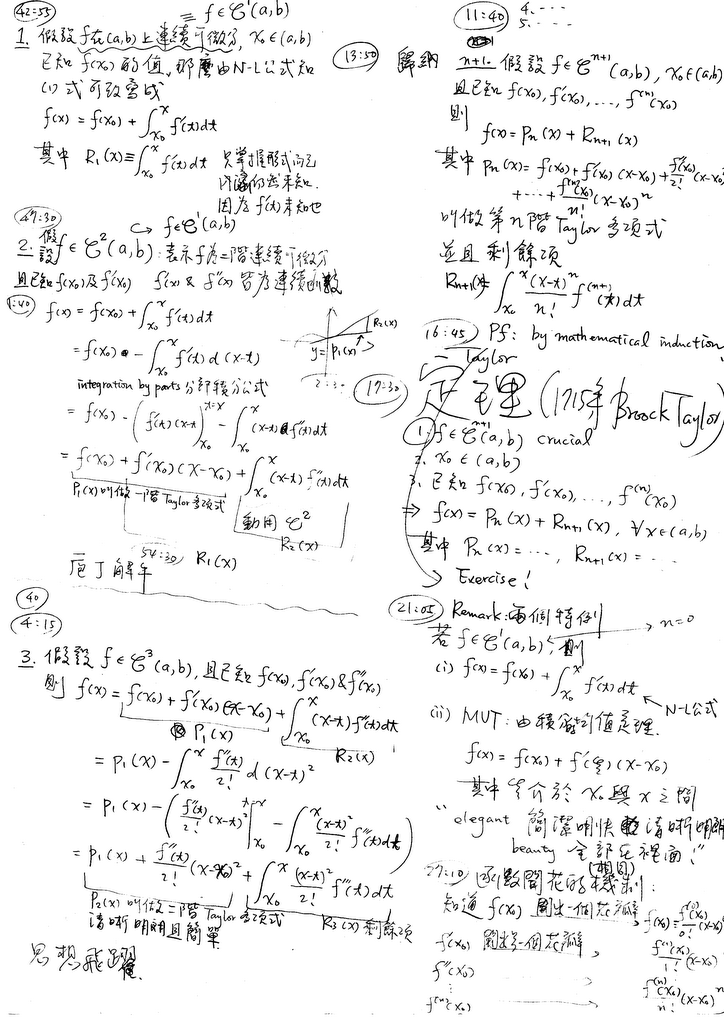 42:55
≡ f∈C¹(a,b)
1. 假設 f在(a,b)上連續可微分, x₀∈(a,b)
已知 f(x₀)的值, 那麼由N-L公式知
(1)式可改寫成
f(x) = f(x₀) + ∫_{x₀}^{x} f'(t)dt
其中 R₁(x) ≡ ∫_{x₀}^{x} f'(t)dt 只掌握形式而已
仍然未知.
因為 f'(t)未知也
47:30
↪ f∈C¹(a,b)
2. 假設 f∈C²(a,b): 表示f為二階連續可微分
且已知 f(x₀)及f'(x₀) f'(x) & f''(x) 皆為連續函數
1:40
f(x) = f(x₀) + ∫_{x₀}^{x} f'(t)dt
= f(x₀) - ∫_{x₀}^{x} f'(t) d(x-t)
R₂(x)
y = P₁(x)
integration by parts 分部積分公式
= f(x₀) - ( f'(t)(x-t)|_{x₀}^{t=x} - ∫_{x₀}^{x} (x-t) f''(t)dt
= f(x₀) + f'(x₀)(x-x₀) + ∫_{x₀}^{x} (x-t) f''(t)dt
P₁(x) 叫做一階Taylor多項式
動用 C²
R₂(x)
54:30 R₁(x)
庖丁解牛
40
4:15
3. 假設 f∈C³(a,b), 且已知 f(x₀), f'(x₀) & f''(x₀)
則 f(x) = f(x₀) + f'(x₀)(x-x₀) + ∫_{x₀}^{x} (x-t) f''(t)dt
P₁(x)
R₂(x)
= P₁(x) - ∫_{x₀}^{x} f''(t)/2! d(x-t)²
= P₁(x) - ( f''(t)/2! (x-t)²|_{x₀}^{t=x} - ∫_{x₀}^{x} (x-t)²/2! f'''(t)dt )
= P₁(x) + f''(x₀)/2! (x-x₀)² + ∫_{x₀}^{x} (x-t)²/2! f'''(t)dt
P₂(x) 叫做二階Taylor多項式
R₃(x) 剩餘項
清晰明朗且簡單
思想飛躍
11:40
4. ‐‐‐‐
5. ‐‐‐‐
13:50
歸納 n+1. 假設 f∈C^{n+1}(a,b), x₀∈(a,b)
且已知 f(x₀), f'(x₀), ..., f⁽ⁿ⁾(x₀)
則
f(x) = Pₙ(x) + Rₙ₊₁(x)
其中 Pₙ(x) = f(x₀) + f'(x₀)(x-x₀) + f''(x₀)/2! (x-x₀)
+ ... + f⁽ⁿ⁾(x₀)/n! (x-x₀)ⁿ
叫做第n階Taylor多項式
並且剩餘項
Rₙ₊₁(x) = ∫_{x₀}^{x} (x-t)ⁿ/n! f⁽ⁿ⁺¹⁾(t)dt
16:45
Pf: by mathematical induction
19:30
Taylor
定理 (1715年 Broock Taylor)
1. f∈C^{n+1}(a,b) crucial
2. x₀∈(a,b)
3. 已知 f(x₀), f'(x₀), ..., f⁽ⁿ⁾(x₀)
⇒ f(x) = Pₙ(x) + Rₙ₊₁(x), ∀x∈(a,b)
其中 Pₙ(x) = ..., Rₙ₊₁(x) = ...
Exercise!
21:05
Remark: 兩個特例
→ n=0
若 f∈C¹(a,b), 則
(i) f(x) = f(x₀) + ∫_{x₀}^{x} f'(t)dt
N-L公式
(ii) MVT: 由積分均值定理.
f(x) = f(x₀) + f'(ξ)(x-x₀)
其中 ξ介於 x₀與x之間
"elegant 簡潔明快 清晰明朗
beauty 全部在裡面!"
27:10
(相同)
函數開花的機制:
知道 f(x₀) 開出一個花瓣, f(x₀) = f⁽⁰⁾(x₀)/0! (x-x₀)
f'(x₀) 開出另一個花瓣, f⁽¹⁾(x₀)/1! (x-x₀)
f''(x₀)
⋮
f⁽ⁿ⁾(x₀) → f⁽ⁿ⁾(x₀)/n! (x-x₀)ⁿ